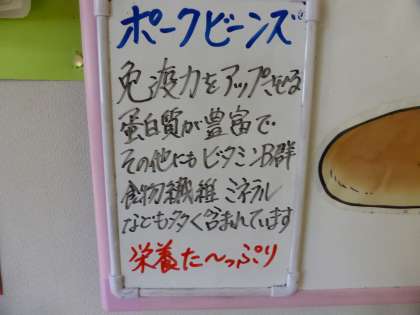 ポークビーンズ
免疫力をアップさせる
蛋白質が豊富で
その他にもビタミンB群
食物繊維 ミネラル
なども多く含まれています
栄養た〜っぷり